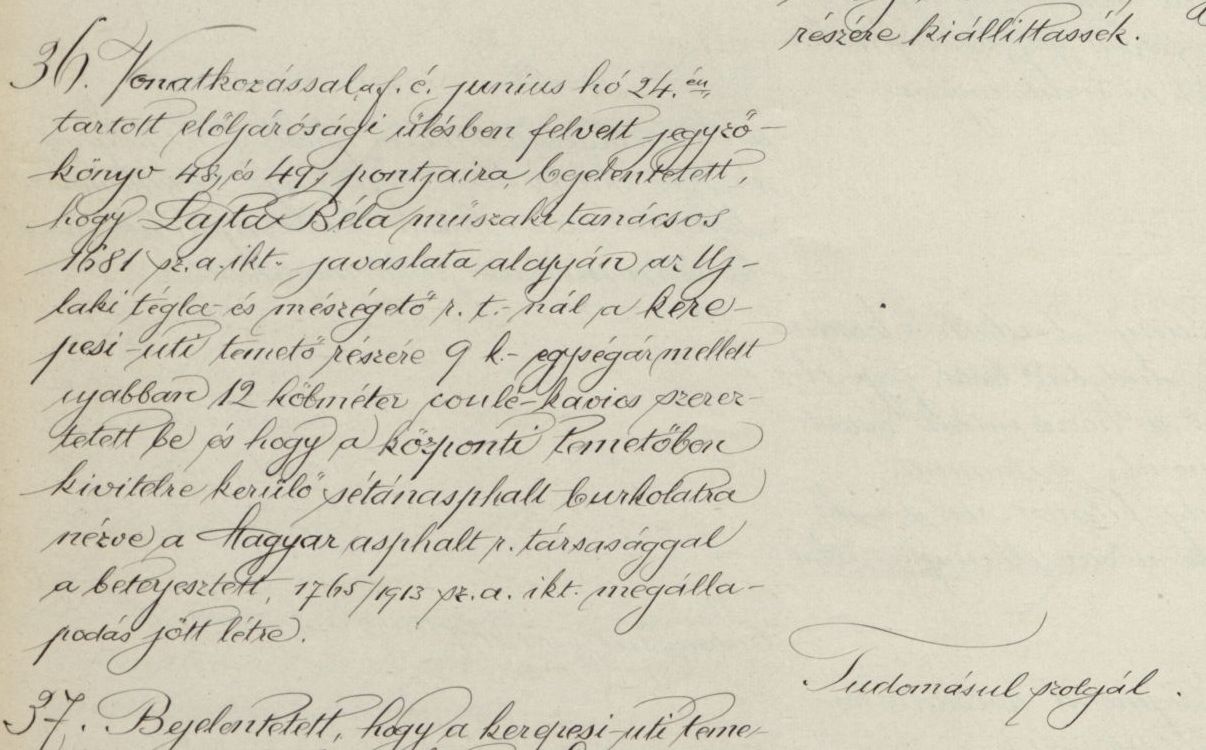 részére kiállittassék.
36. Vonatkozással a f. é. junius hó 24.-én
tartott előljárósági ülésben felvett jegyző-
könyv 48, és 49, pontjaira, bejelentetett,
hogy Lajta Béla müszaki tanácsos
1681 sz. a. ikt. javaslata alapján az Uj-
laki tégla- és mészégető r. t.-nál a kere-
pesi-uti temető részére 9 k.- egységár mellett
ujabban 12 köbméter coulé-kavics szerez-
tetett be és hogy a központi temetőben
kivitelre kerülő sétánasphalt burkolatra
nézve a Magyar asphalt r. társasággal
a beterjesztett, 1765/1913 sz. a. ikt. megálla-
podás jött létre.
Tudomásul szolgál.
37. Bejelentetett, hogy a kerepesi-uti teme-